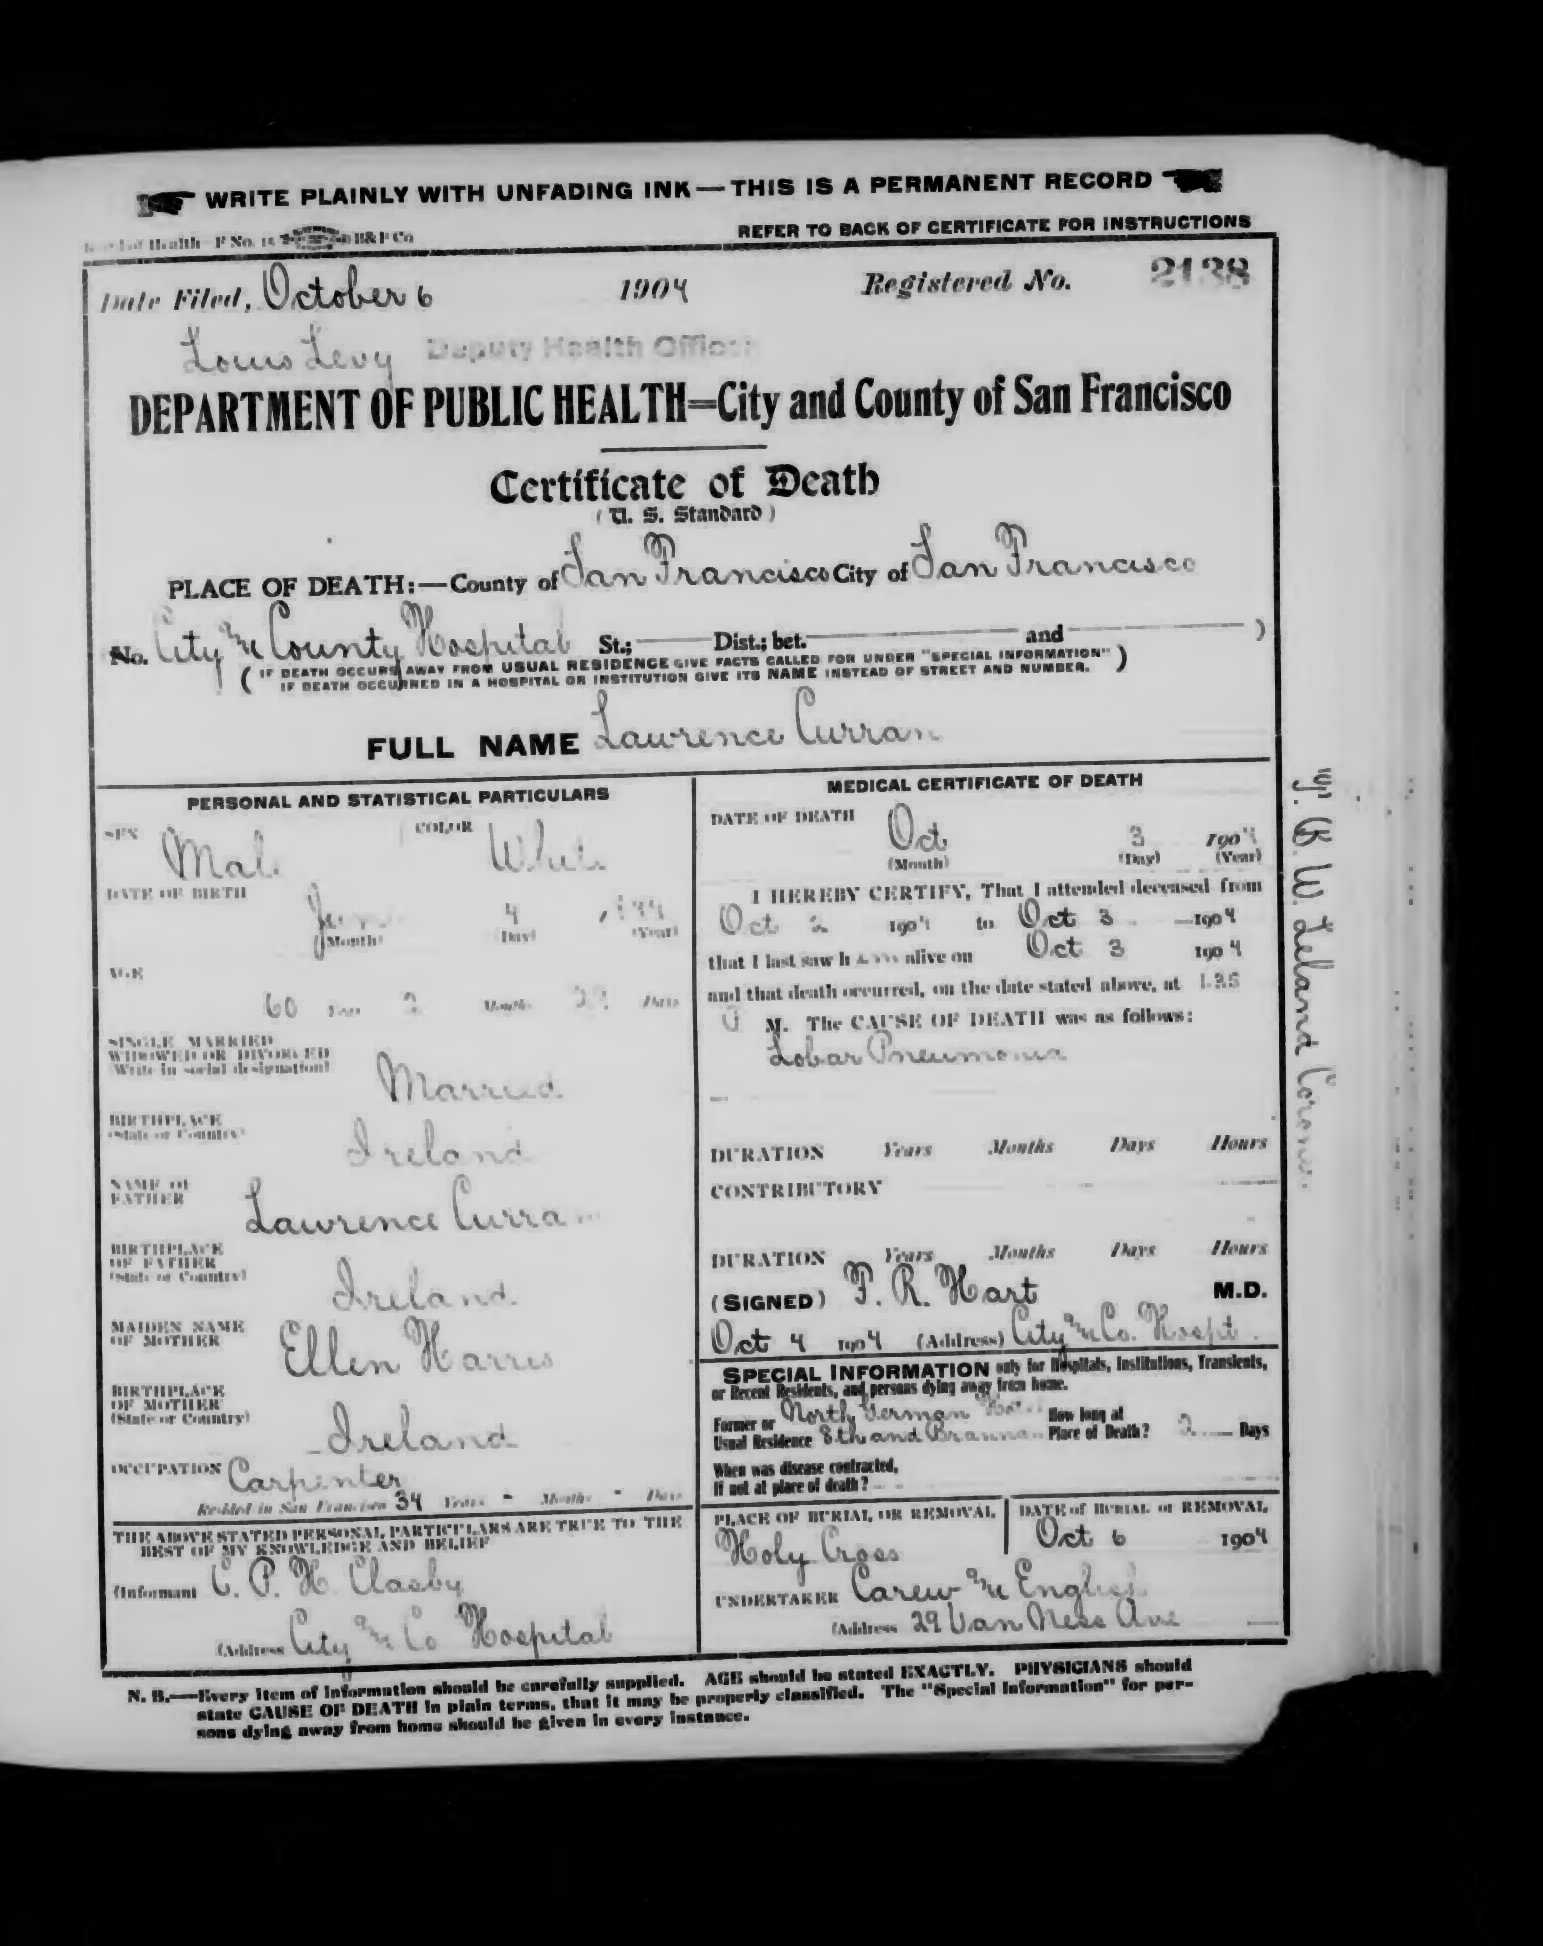 WRITE PLAINLY WITH UNFADING INK — THIS IS A PERMANENT RECORD
Health—F No. 15 B&P Co
REFER TO BACK OF CERTIFICATE FOR INSTRUCTIONS
Date Filed, October 6 1904 Registered No. 2138
Louis Levy Deputy Health Officer
DEPARTMENT OF PUBLIC HEALTH=City and County of San Francisco
Certificate of Death
(U. S. Standard)
PLACE OF DEATH:—County of San Francisco City of San Francisco
No. City and County Hospital St.; Dist.; bet. and )
( IF DEATH OCCURS AWAY FROM USUAL RESIDENCE GIVE FACTS CALLED FOR UNDER "SPECIAL INFORMATION" )
IF DEATH OCCURRED IN A HOSPITAL OR INSTITUTION GIVE ITS NAME INSTEAD OF STREET AND NUMBER.
FULL NAME Lawrence Curran
PERSONAL AND STATISTICAL PARTICULARS
SEX Male COLOR White
DATE OF BIRTH
4
(Month) (Day) (Year)
AGE
60 Years 2 Months Days
SINGLE MARRIED
WIDOWED OR DIVORCED
(Write in social designation)
Married
BIRTHPLACE
(State or Country)
Ireland
NAME OF
FATHER
Lawrence Curran
BIRTHPLACE
OF FATHER
(State or Country)
Ireland
MAIDEN NAME
OF MOTHER
Ellen Harris
BIRTHPLACE
OF MOTHER
(State or Country)
Ireland
OCCUPATION Carpenter
Resided in San Francisco 34 Years - Months - Days
THE ABOVE STATED PERSONAL PARTICULARS ARE TRUE TO THE
BEST OF MY KNOWLEDGE AND BELIEF
(Informant C. P. H. Clasby
(Address City and Co Hospital
MEDICAL CERTIFICATE OF DEATH
DATE OF DEATH
Oct 3 1904
(Month) (Day) (Year)
I HEREBY CERTIFY, That I attended deceased from
Oct 2 1904 to Oct 3 1904
that I last saw h alive on Oct 3 1904
and that death occurred, on the date stated above, at
M. The CAUSE OF DEATH was as follows:
Lobar Pneumonia
DURATION Years Months Days Hours
CONTRIBUTORY
DURATION Years Months Days Hours
(SIGNED) F. R. Hart M.D.
Oct 4 1904 (Address) City and Co. Hospt.
SPECIAL INFORMATION only for Hospitals, Institutions, Transients,
or Recent Residents, and persons dying away from home.
Former or North German How long at
Usual Residence 8th and Brannan Place of Death? 2 Days
When was disease contracted,
If not at place of death?
PLACE OF BURIAL OR REMOVAL
Holy Cross
DATE of BURIAL or REMOVAL
Oct 6 1904
UNDERTAKER Carew and English
(Address 29 Van Ness Ave
N. B.—Every item of information should be carefully supplied. AGE should be stated EXACTLY. PHYSICIANS should
state CAUSE OF DEATH in plain terms, that it may be properly classified. The "Special Information" for per-
sons dying away from home should be given in every instance.
T. B. W. Leland Coroner